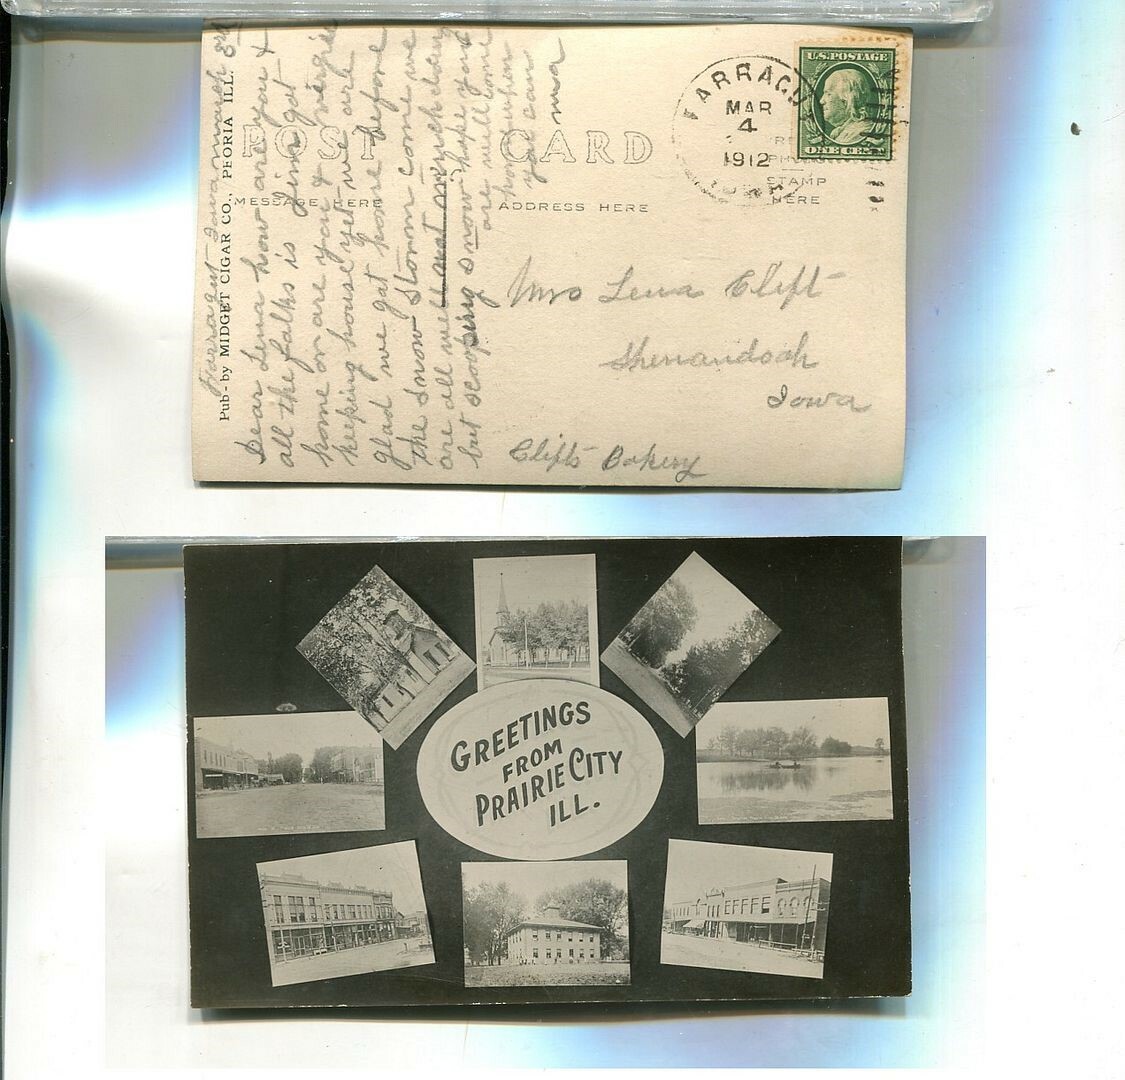 Farragut Iowa March 3rd
Dear Lena how are you &
all the folks is Jim got
home or are you & Virgie
keeping house yet we are
glad we got home before
the snow storm come we
are all well
but scooping snow hope you
are well come
you can
ma
Pub- by MIDGET CIGAR CO., PEORIA ILL.
POST CARD
MESSAGE HERE
ADDRESS HERE
FARRAGUT
MAR
4
1912
IOWA
U.S. POSTAGE
ONE CENT
STAMP
HERE
Mrs Lena Clift
Shenandoah
Iowa
Clifts Bakery
GREETINGS
FROM
PRAIRIE CITY
ILL.